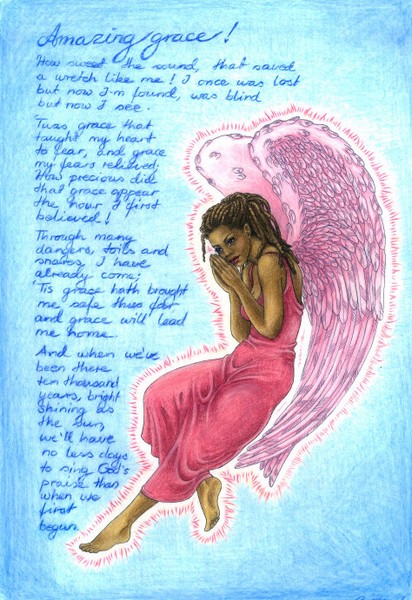 Amazing grace!
How sweet the sound, that saved
a wretch like me! I once was lost
but now I'm found, was blind
but now I see.
'Twas grace that
taught my heart
to fear, and grace
my fears relieved;
How precious did
that grace appear
the hour I first
believed!
Through many
dangers, toils and
snares, I have
already come;
'Tis grace hath brought
me safe thus far
and grace will lead
me home.
And when we've
been there
ten thousand
years, bright
shining as
the sun,
we'll have
no less days
to sing God's
praise than
when we
first
begun.